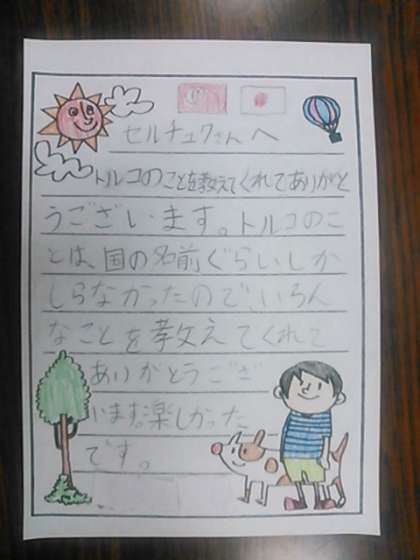 セルチュクさんへ
トルコのことを教えてくれてありがと
うございます。トルコのこ
とは、国の名前ぐらいしか
しらなかったので、いろん
なことを教えてくれて
ありがとうござ
います。楽しかった
です。